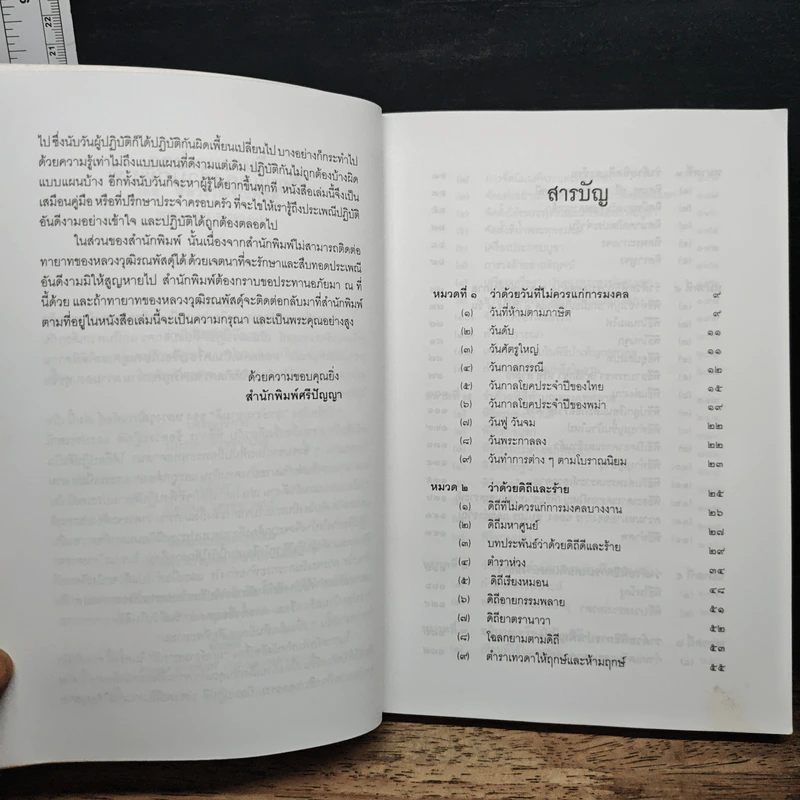 ไป ซึ่งนับวันผู้ปฏิบัติก็ได้ปฏิบัติกันผิดเพี้ยนเปลี่ยนไป บางอย่างก็กระทำไป
ด้วยความรู้เท่าไม่ถึงแบบแผนที่ดีงามแต่เดิม ปฏิบัติกันไม่ถูกต้องบ้างผิด
แบบแผนบ้าง อีกทั้งนับวันก็จะหาผู้รู้ได้ยากขึ้นทุกที หนังสือเล่มนี้จึงเป็น
เสมือนคู่มือ หรือที่ปรึกษาประจำครอบครัว ที่จะไขให้เรารู้ถึงประเพณีปฏิบัติ
อันดีงามอย่างเข้าใจ และปฏิบัติได้ถูกต้องตลอดไป
ในส่วนของสำนักพิมพ์ นั้นเนื่องจากสำนักพิมพ์ไม่สามารถติดต่อ
ทายาทของหลวงวุฒิรณพัสดุ์ได้ ด้วยเจตนาที่จะรักษาและสืบทอดประเพณี
อันดีงามมิให้สูญหายไป สำนักพิมพ์ต้องกราบขอประทานอภัยมา ณ ที่
นี้ด้วย และถ้าทายาทของหลวงวุฒิรณพัสดุ์จะติดต่อกลับมาที่สำนักพิมพ์
ตามที่อยู่ในหนังสือเล่มนี้จะเป็นความกรุณา และเป็นพระคุณอย่างสูง
ด้วยความขอบคุณยิ่ง
สำนักพิมพ์ศรีปัญญา
สารบัญ
หมวดที่ ๑ ว่าด้วยวันที่ไม่ควรแก่การมงคล ๙
(๑) วันที่ห้ามตามภาษิต ๙
(๒) วันดับ ๑๑
(๓) วันศัตรูใหญ่ ๑๑
(๔) วันกาลกรรณี ๑๒
(๕) วันกาลโยคประจำปีของไทย ๑๕
(๖) วันกาลโยคประจำปีของพม่า ๑๙
(๗) วันฟู วันจม ๒๒
(๘) วันพระกาลลง ๒๒
(๙) วันทำการต่าง ๆ ตามโบราณนิยม ๒๓
หมวด ๒ ว่าด้วยดิถีและร้าย ๒๕
(๑) ดิถีที่ไม่ควรแก่การมงคลบางงาน ๒๖
(๒) ดิถีมหาศูนย์ ๒๗
(๓) บทประพันธ์ว่าด้วยดิถีดีและร้าย ๒๙
(๔) ตำราห่วง ๓๔
(๕) ดิถีเรียงหมอน ๔๘
(๖) ดิถีอายกรรมพลาย ๕๑
(๗) ดิถียาตรานาวา ๕๒
(๘) โฉลกยามตามดิถี ๕๓
(๙) ตำราเทวดาให้ฤกษ์และห้ามฤกษ์ ๕๕
22
21